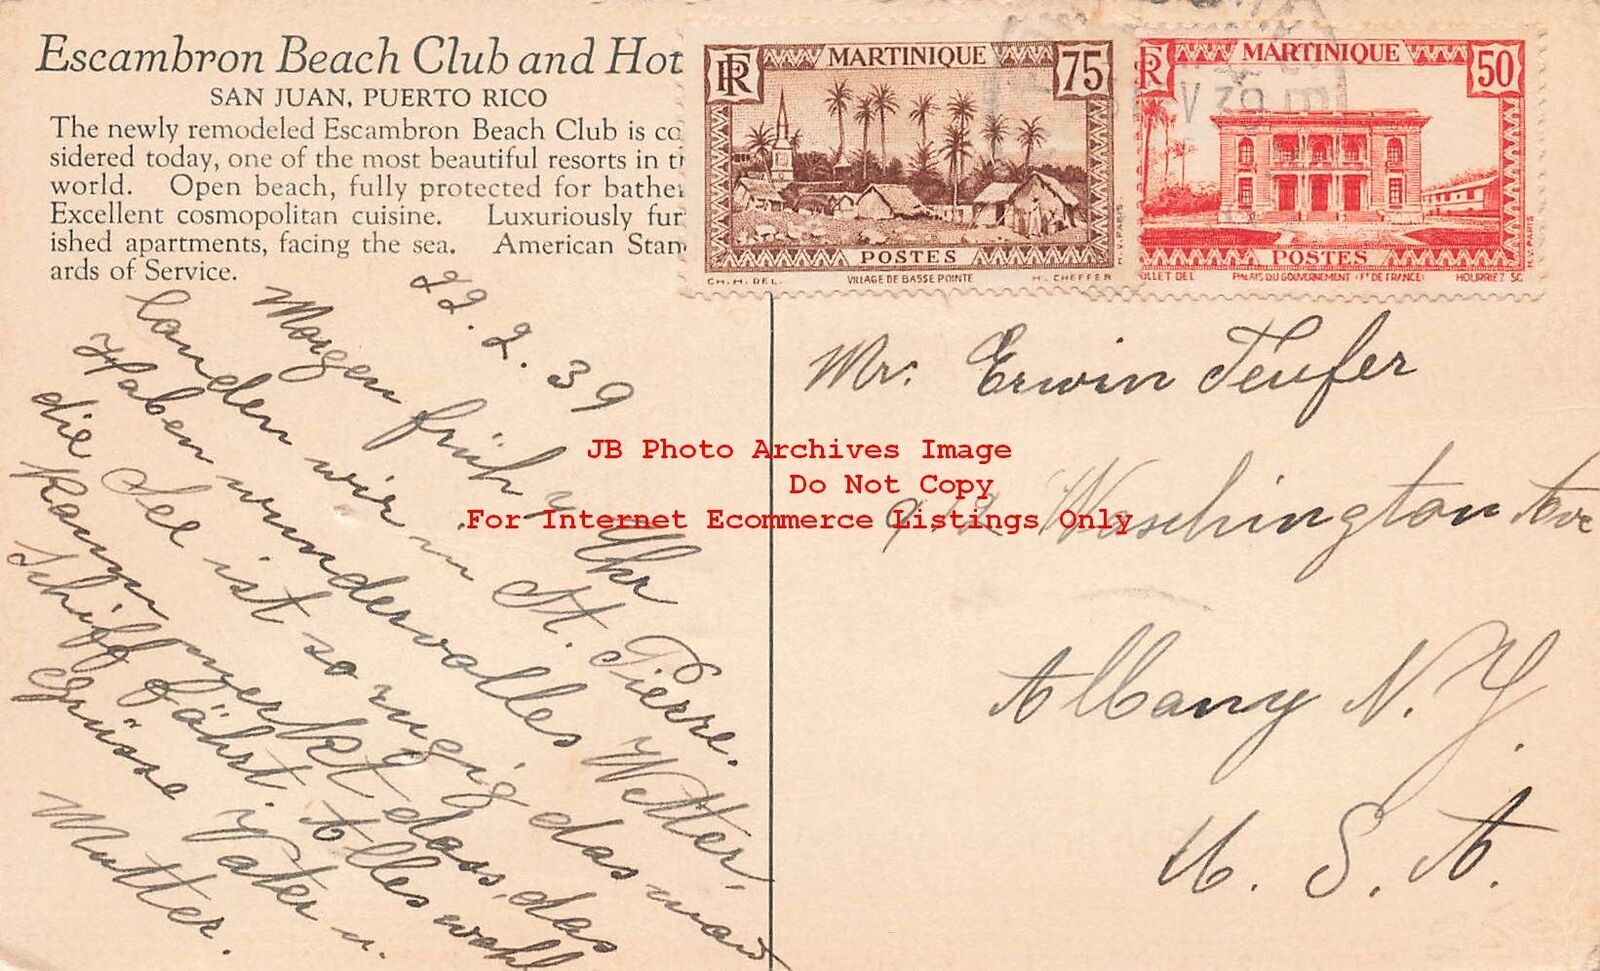 Escambron Beach Club and Hot
SAN JUAN, PUERTO RICO
The newly remodeled Escambron Beach Club is co
sidered today, one of the most beautiful resorts in t
world. Open beach, fully protected for bathe
Excellent cosmopolitan cuisine. Luxuriously fur
ished apartments, facing the sea. American Stan
ards of Service.
RF MARTINIQUE 75
POSTES
CH. H. DEL. VILLAGE DE BASSE POINTE H. CHEFFER
H.V. PARIS
R MARTINIQUE 50
POSTES
OLLET DEL PALAIS DU GOUVERNEMENT (FT DE FRANCE) HOURRIEZ SC
H.V. PARIS
22.2.39
Morgen früh 7 Uhr
landen wir in St. Pierre.
Haben wundervolles Wetter,
die See ist so ruhig das man
kaum merkt dass das
Schiff fährt. Alles wohl
Grüsse Vater u.
Mutter.
Mr. Erwin Teufer
Waschington Ave
Albany N.Y.
U.S.A.
JB Photo Archives Image
Do Not Copy
For Internet Ecommerce Listings Only